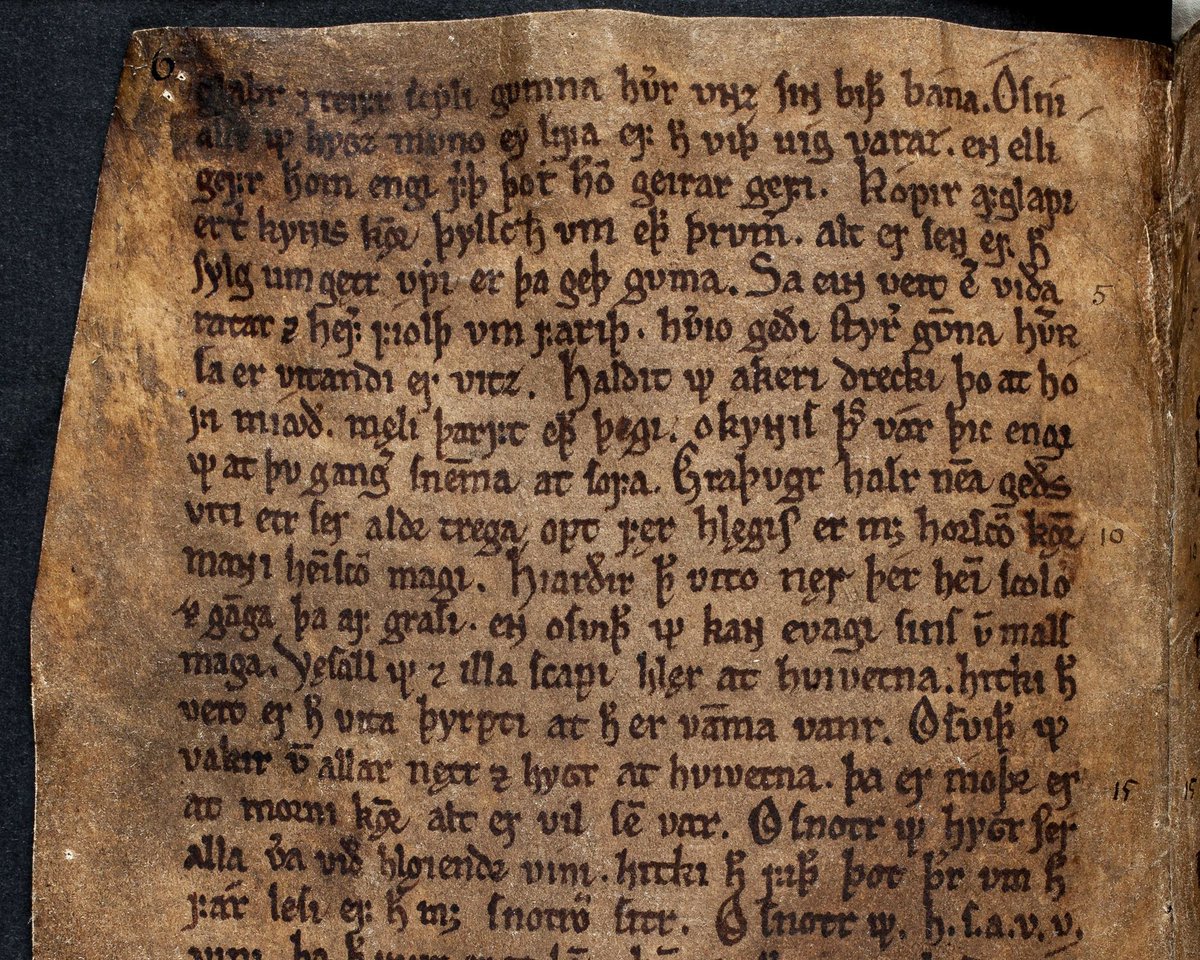 6
glaþr ⁊ reifr scyli gvmna hv͛r vnz siɴ biþ bana. Osni
allr ᛘ hygz mvno ey lifa ef h̅ viþ uig varaz. eɴ elli
gefr ho̅m engi f͛þ þot ho̅ geirar gefi. Kopir afglapi
er t͛ kyɴis kø̅r þylsc h̅ vm eþ̅ þrvm̅. alt er seɴ ef h̅
sylg um getr vpi er þa geþ gvma. Sa eiɴ veit e̅ viða
ratar ⁊ hef͛ fiolþ vm fariþ. hv͛io geði styr͛ gv̅na hv͛ʀ
sa er vitandi er vitz. Haldit ᛘ a keri drecki þo at ho
fi miaþ͛. męli þarft eþ̅ þegi. okyɴis þ͛s vár þic engi
ᛘ at þv gang͛ sne̅ma at sofa. Graþvgr halr ne̅a geðs
viti etr ser aldꝛ trega, opt fęr hlęgis er mꝫ horsco̅ kø̅ꝛ
5
10
maɴi he̅sco̅ magi. Hiarðir þ̅ vito nęr þęr hei̅ scolo
⁊ ga̅ga þa af grasi. eɴ osviþ̅ ᛘ kaɴ evagi sins v̅ mals
maga. Vęsall ᛘ ⁊ illa scapi hlęr at hvivetna. hitki h̅
veit er h̅ vita þyrpti at h̅ er va̅ma vanr. Osviþ̅ ᛘ
vakir v̅ allar nętr ⁊ hygr at hvivetna. þa er moþꝛ er
15
at morni kø̅ꝛ alt er vil se̅ var. Osnotr ᛘ hygr ser
alla v͛a við hlęiendꝛ vini. hitki h̅ fiþ̅ þot þ͛r vm h̅
fár lesi ef h̅ mꝫ snotro̅ sitr. Osnotr ᛘ. h. s. a. v. v.